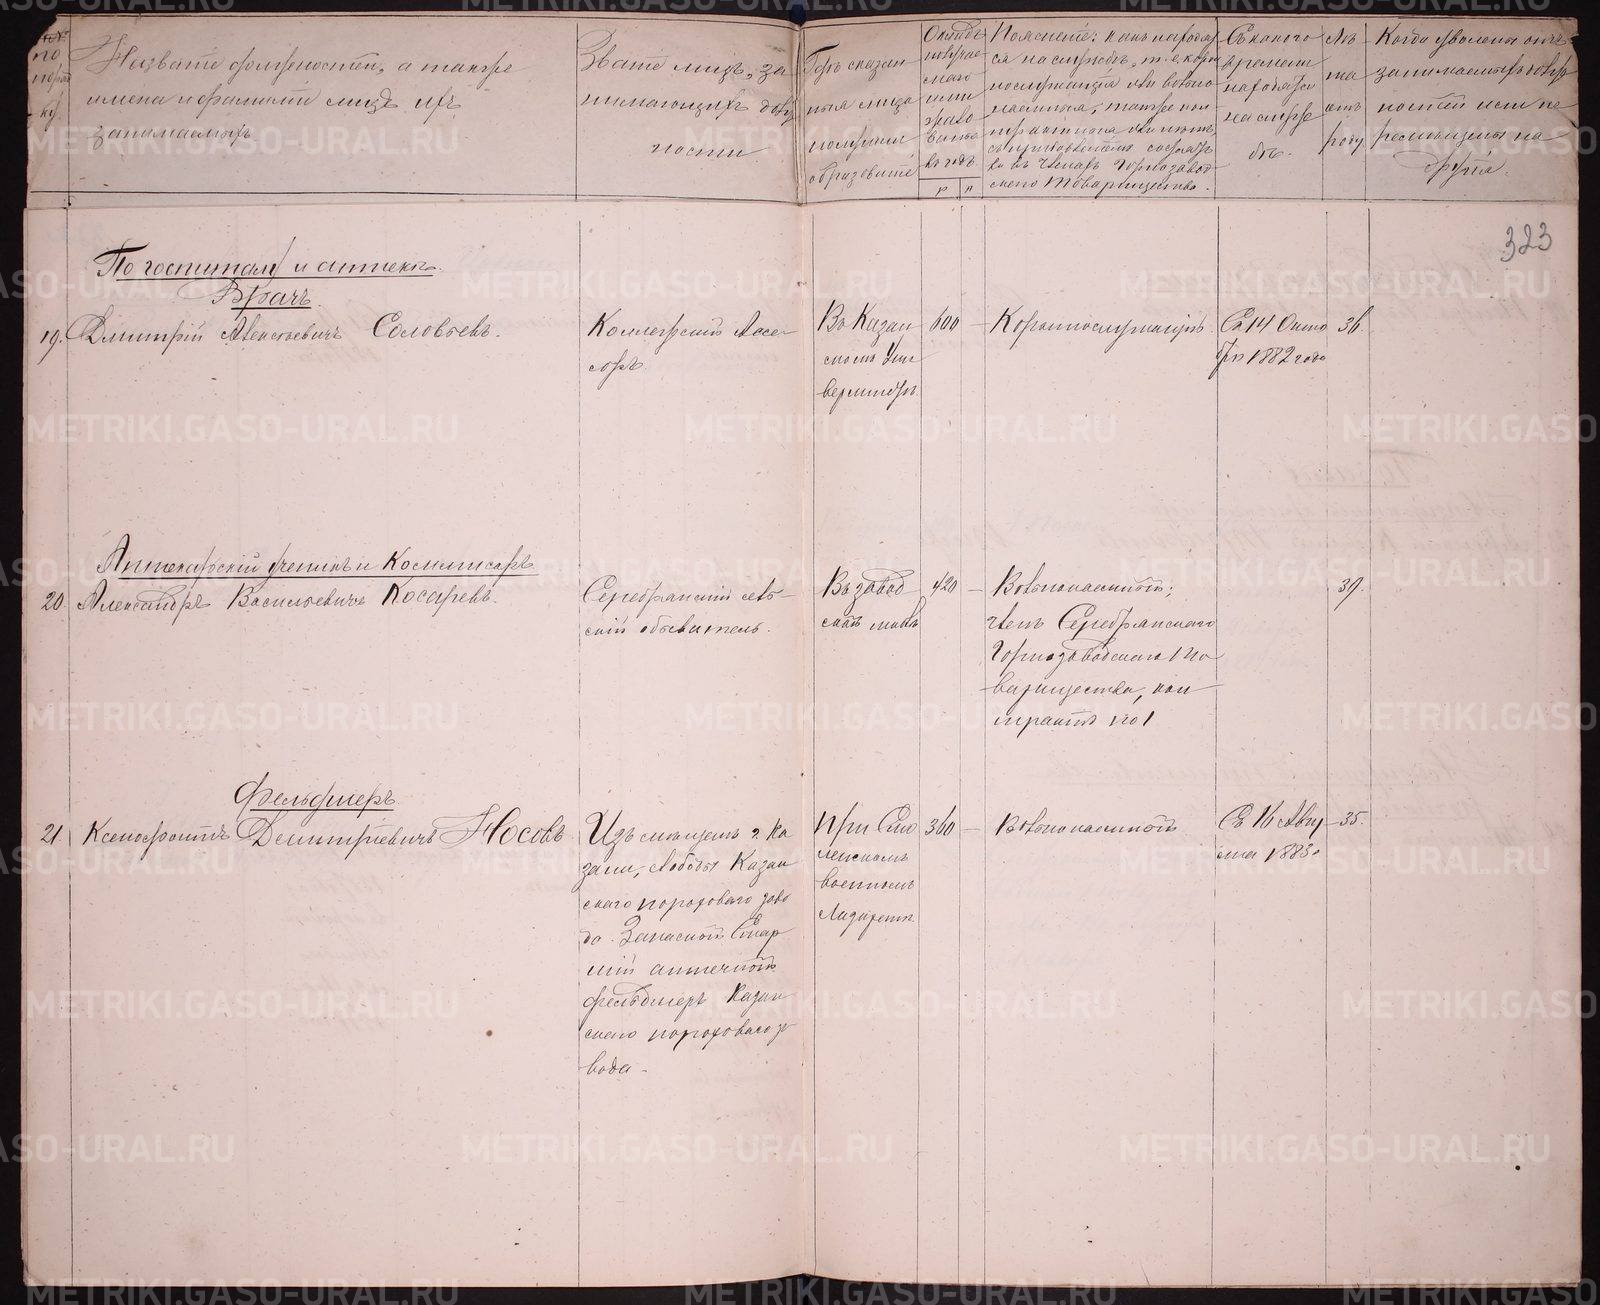 №№
по
поряд
ку.
Названіе должностей, а также
имена и фамиліи лицъ ихъ
занимаемыхъ
Званіе лицъ, за
нимающихъ долж
ности.
Гдѣ сказан
ныя лица
получили
образованіе
Окладъ
получае
маго
ими
жалова
нья
въ годъ
р п
Поясненіе: какъ находят
ся на службѣ, т. е. корон
нослужащія или вольно
наемныя, также кон
тракты
съ
въ членахъ Горнозавод
скаго Товарищества.
Съ какого
времени
находятся
на служ
бѣ.
Лѣ
та
отъ
роду
Когда уволены отъ
занимаемыхъ долж
ностей или пе
ремѣщены на
другія.
323
По госпиталю и аптекѣ.
Врачъ.
19. Дмитрій Алексѣевичъ Соловьевъ.
Коллежскій Ассе-
соръ.
Въ Казан
скомъ Уни
верситетѣ.
600 —
Короннослужащій.
Съ 14 Октя
бря 1882 года
36.
Аптекарскій ученикъ и Коммисаръ
20 Александръ Васильевичъ Косаревъ.
Серебрянскій сель-
скій обыватель.
Въ завод
ской школѣ
420 —
Вольнонаемный;
членъ Серебрянскаго
Горнозаводскаго То
варищества, кон
трактъ по 1
39.
Фельдшеръ.
21. Ксенофонтъ Дмитріевичъ Носовъ
Изъ мѣщанъ г. Ка
зани, слободы Казан
скаго пороховаго заво
да. Запасной Стар
шій аптечный
фельдшеръ Казан
скаго пороховаго за
вода.
При Смо
ленскомъ
военномъ
Лазаретѣ
360 —
Вольнонаемный
Съ 16 Авгу
ста 1883 г.
35.
METRIKI.GASO-URAL.RU